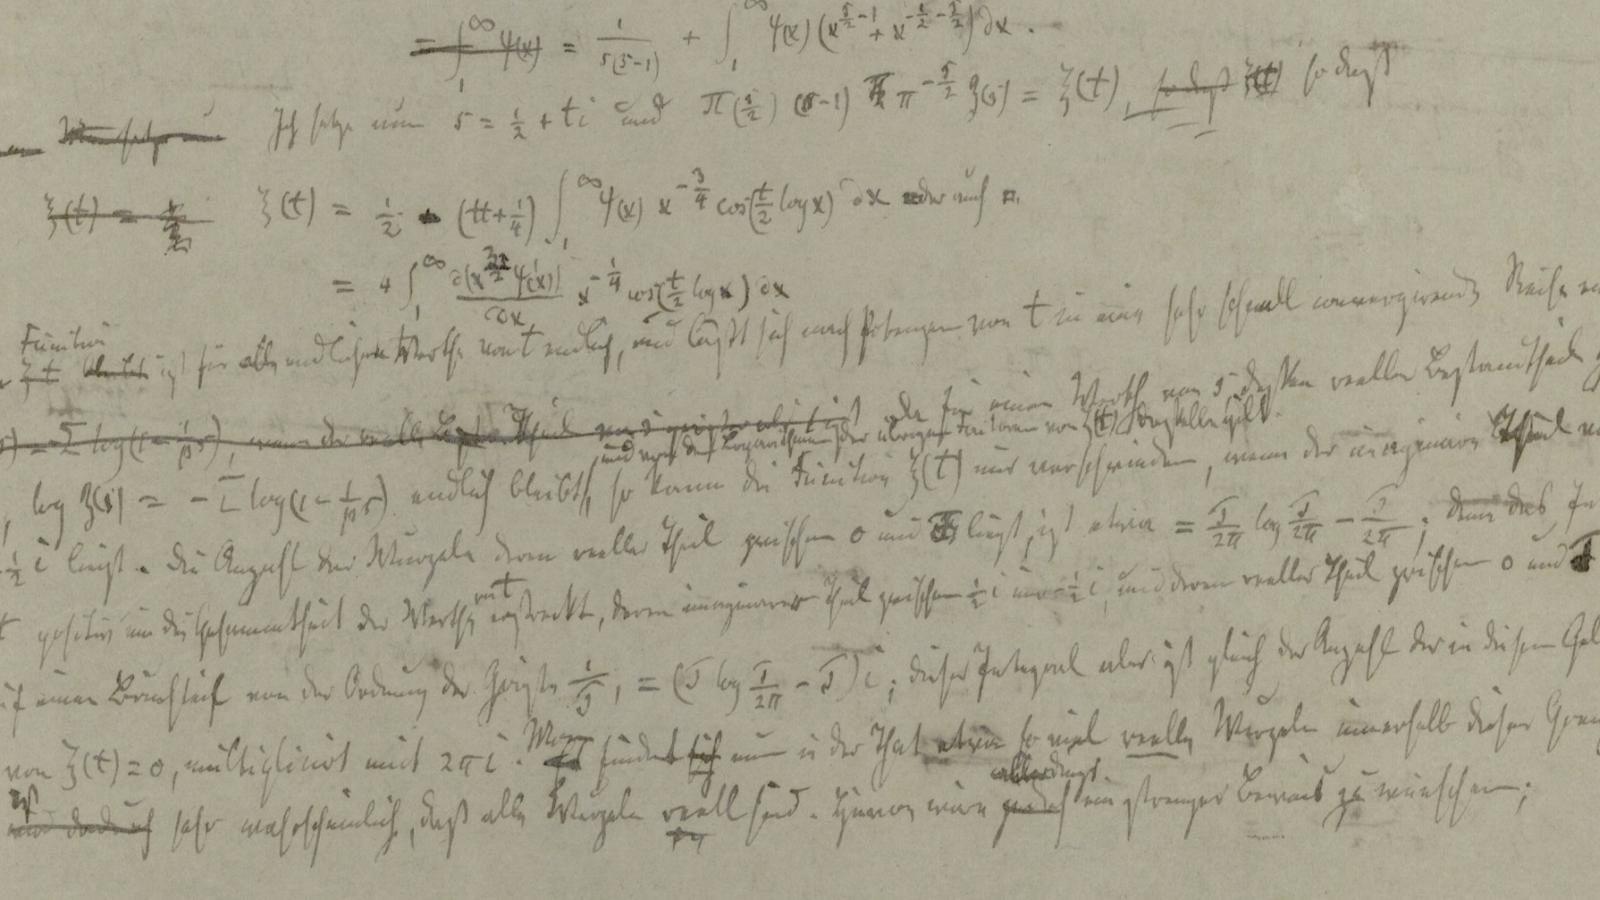 = ∫₁^∞ ψ(x) = 1/s(s-1) + ∫₁^∞ ψ(x) (x^{s/2-1} + x^{-1/2-s/2}) ∂x.
Ich setze nun s = 1/2 + ti und Π(s/2) (s-1) π^{-s/2} ζ(s) = ξ(t), so daß ξ(t) so daß
ξ(t) =
ξ(t) = 1/2 - (tt+1/4) ∫₁^∞ ψ(x) x^{-3/4} cos(t/2 log x) ∂x oder auch
= 4 ∫₁^∞ ∂(x^{3/2} ψ'(x))/∂x x^{-1/4} cos(t/2 log x) ∂x
Function
ξt bleibt ist für alle endlichen Werthe von t endlich, und läßt sich nach Potenzen von t in eine sehr schnell convergirende Reihe
= -Σ log(1-1/p^s), wenn der reelle Theil oder für einen Werth von s, dessen reeller Bestandtheil
und von den Logarithmen der übrigen Factoren von ξ(t) dasselbe gilt.
, log ζ(s) = -Σ log(1-1/p^s) endlich bleibt, so kann die Function ξ(t) nur verschwinden, wenn der imaginäre Theil
1/2 i liegt. Die Anzahl der Wurzeln deren reeller Theil zwischen 0 und T liegt, ist etwa = T/2π log T/2π - T/2π; denn das
t positiv um die Gesammtheit der Werthe von t erstreckt, deren imaginärer Theil zwischen 1/2 i und -1/2 i, und deren reeller Theil zwischen 0 und T
auf einen Bruchtheil von der Ordnung der Größe 1/T, = (T log T/2π - T) i; dieses Integral aber ist gleich der Anzahl der in diesem
von ξ(t) = 0, multiplicirt mit 2πi. Man findet sich nun in der That etwa so viel reelle Wurzeln innerhalb dieser
sehr wahrscheinlich, daß alle Wurzeln reell sind. Hievon wäre allerdings ein strenger Beweis zu wünschen;